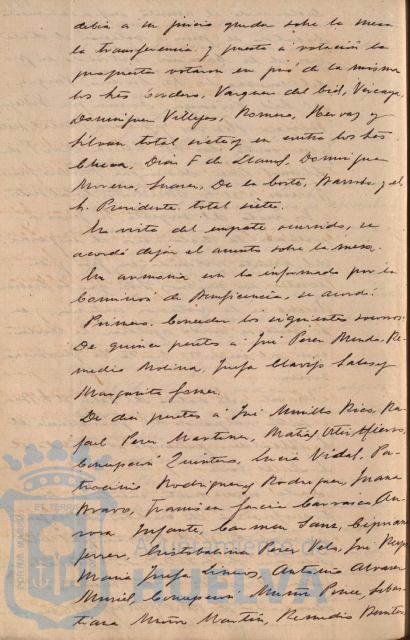 debia a su juicio quedar sobre la mesa
la transferencia y puesta á votación la
propuesta votaron en pró de la misma
los Sres Cordero, Vazquez del Cid, Vizcaya,
Dominguez Villegas, Romero, Hervas y
Silvan total siete y en contra los Sres.
Checa, Diaz F de Dominguez
Moreno, Suarez, De la Corte, Barroso y el
Sr. Presidente total siete.
En vista del empate ocurrido, se
acordó dejar el asunto sobre la mesa.
En armonia con lo informado por la
Comisión de Beneficencia, se acordó:
Primero. Conceder los siguientes socorros:
De quince pesetas á José Perez Mendez, Re-
medio Molina, Josefa Clavijo Sales y
Margarita Gomez.
De diez pesetas á José Murillo Rico, Ra-
fael Perez Martinez, Matias
Concepción Quintero, Lucia Vidal, Pa-
trocinio Rodriguez y Rodriguez, Juana
Bravo, Francisca Garcia Carrasco, Au-
rora Infante, Carmen Sanz, Cipriano
Ferrer, Cristobalina Perez Vela, José
Maria Josefa Antonio Alvarez
Muriel, Concepción Muñoz Ponce, Sebas-
tiana Muñoz Martín, Remedio Benitez
Ayuntamiento de
HUELVA